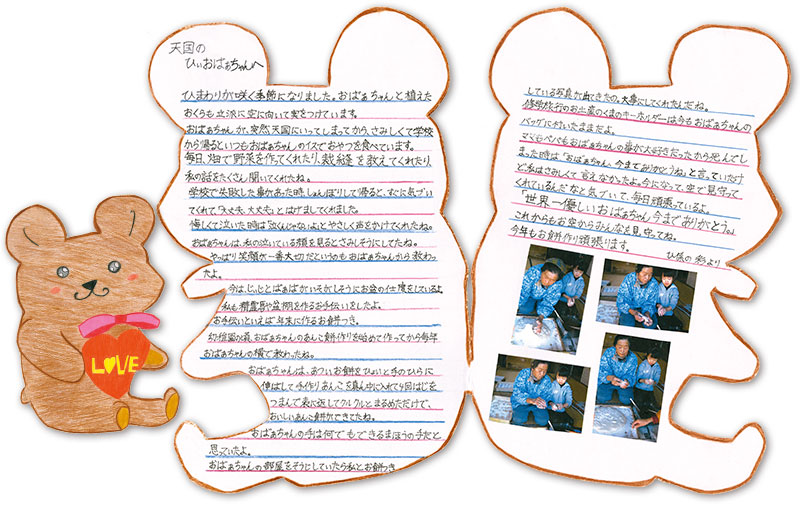 LOVE
天国の
ひぃおばぁちゃんへ
ひまわりが咲く季節になりました。おばぁちゃんと植えた
おくらも立派に空に向いて実をつけています。
おばぁちゃんが、突然天国にいってしまってから、さみしくて学校
から帰るといつもおばぁちゃんのイスでおやつを食べています。
毎日、畑で野菜を作ってくれたり、裁縫を教えてくれたり、
私の話をたくさん聞いてくれたね。
学校で失敗した事があった時、しょんぼりして帰ると、すぐに気づい
てくれて、「大丈夫、大丈夫」とはげましてくれました。
悔しくて泣いた時は「泣くんじゃないよ」とやさしく声をかけてくれたね。
おばぁちゃんは、私の泣いている顔を見るとさみしそうにしてたね。
やっぱり笑顔が一番大切だというのもおばぁちゃんから教わっ
たよ。
今は、じぃじとばぁばがいそがしそうにお盆の仕度をしているよ。
私も精霊馬や盆棚を作るお手伝いをしたよ。
お手伝いといえば年末に作るお餅つき。
幼稚園の頃、おばぁちゃんのあんこ餅作りを始めて作ってから毎年
おばぁちゃんの横で教わったね。
おばぁちゃんは、あつぃお餅をひょいと手のひらに
伸ばして手作りあんこを真ん中に入れて4回はじを
つまんで裏に返してクルクルとまるめただけで、
おいしいあんこ餅ができてたね。
おばぁちゃんの手は何でもできるまほうの手だと
思っていたよ。
おばぁちゃんの部屋をそうじしていたら私とお餅つき
している写真が出てきたの。大事にしてくれたんだね。
修学旅行のお土産のくまのキーホルダーは今もおばぁちゃんの
バッグに付いたままだよ。
ママもパパもおばぁちゃんの事が大好きだったから死んでし
まった時は「おばぁちゃん、今までありがとうね」と言っていたけ
ど私はさみしくて言えなかったよ。今になって、空で見守って
くれているんだなと気づいて、毎日頑張っているよ。
「世界一優しいおばぁちゃん今までありがとう。」
これからもお空からみんなを見守ってね。
今年もお餅作り頑張ります。
ひ孫の 彩より